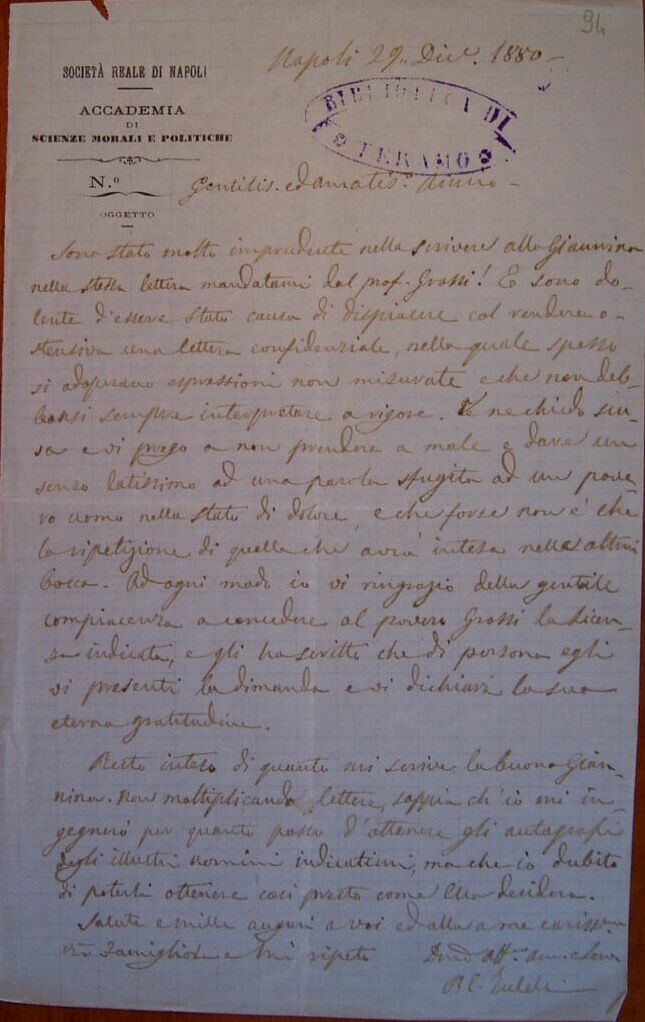 94
Napoli 29. Dic.e 1880
SOCIETÀ REALE DI NAPOLI
BIBLIOTECA DI
TERAMO
ACCADEMIA
DI
SCIENZE MORALI E POLITICHE
N.º
Gentilis. ed amatis.º Amico
OGGETTO
Sono stato molto imprudente nella scrivere alla Giannina
nella stessa lettera mandatami dal prof. Grossi! E sono do-
lente d'essere stato causa di dispiacere col rendere o-
stensiva una lettera confidenziale, nella quale spesso
si adoperano espressioni non misurate e che non deb-
bonsi sempre interpretare a rigore. Ve ne chiedo scu-
sa e vi prego a non prendere a male e dare un
senso latissimo ad una parola sfugita ad un pove-
ro uomo nello stato di dolore, e che forse non è che
la ripetizione di quella che avrà intesa nella altrui
bocca. Ad ogni modo io vi ringrazio della gentile
compiacenza a concedere al povero Grossi la licen-
za indicata, e gli ho scritto che di persona egli
vi presenti la dimanda e vi dichiari la sua
eterna gratitudine.
Resto inteso di quanto mi scrive la buona Gian-
nina. Non moltiplicando lettere, sappia ch'io mi in-
gegnerò per quanto posso d'ottenere gli autografi
degli illustri uomini indicatimi, ma che io dubito
di poterli ottenere così presto come Ella desidera.
Salute e mille auguri a voi ed alla a me cariss.ma
Famigliola e mi ripeto